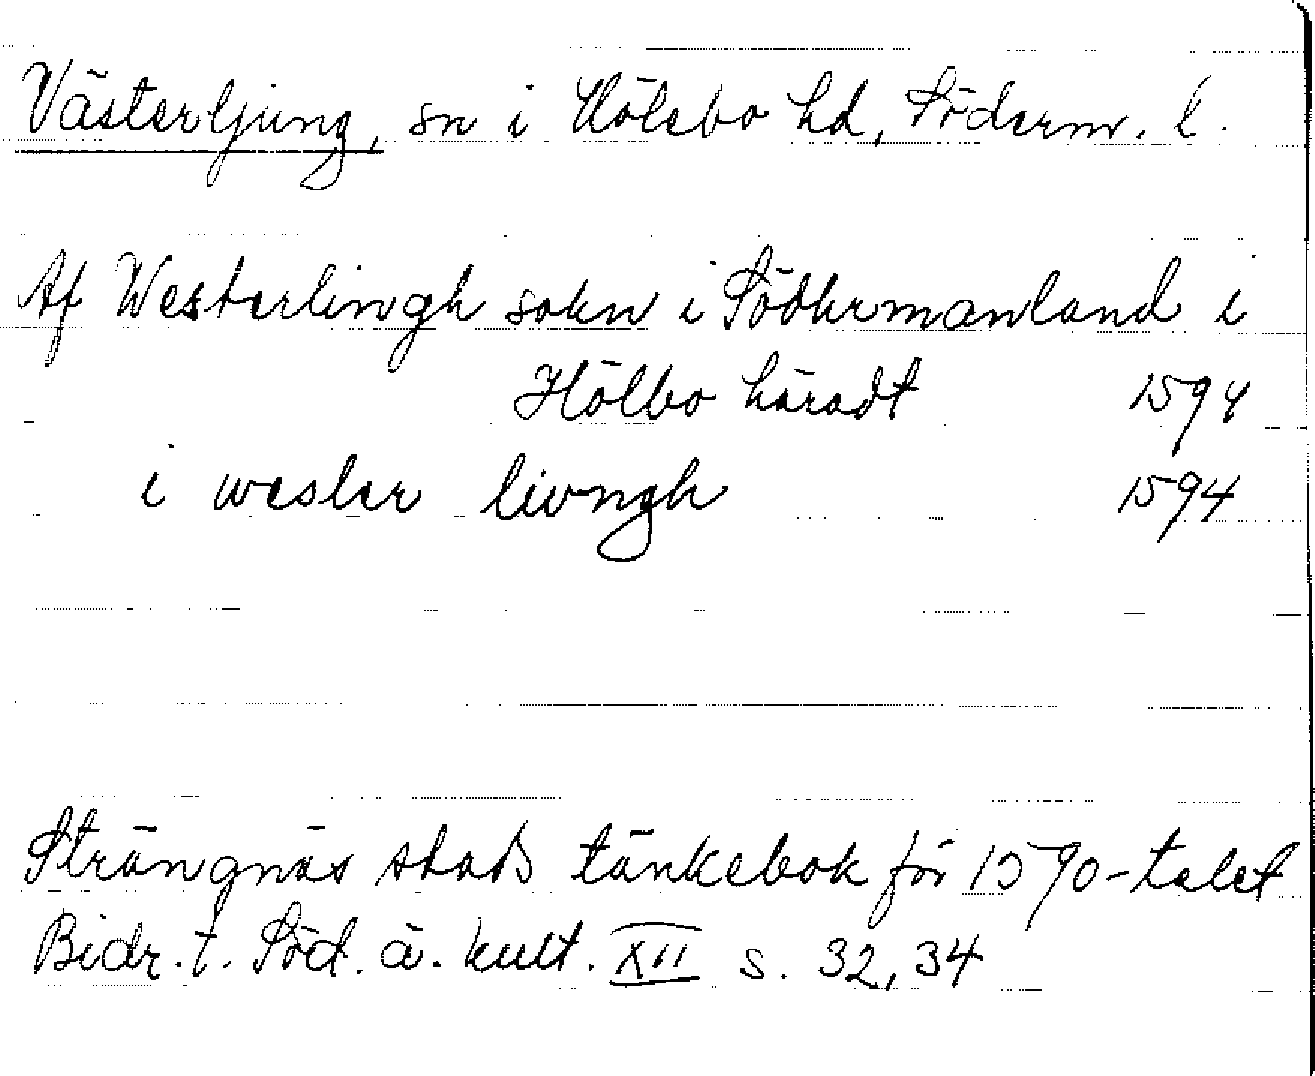 Västerljung, sn i Hölebo hd, Söderm. l.
Af Westerlingh sokn i Södhrmanland i
Hölbo häradt 1594
i wester liungh 1594
Strängnäs stads tänkebok för 1590-talet
Bidr. t. Söd. ä. kult. XII s. 32, 34